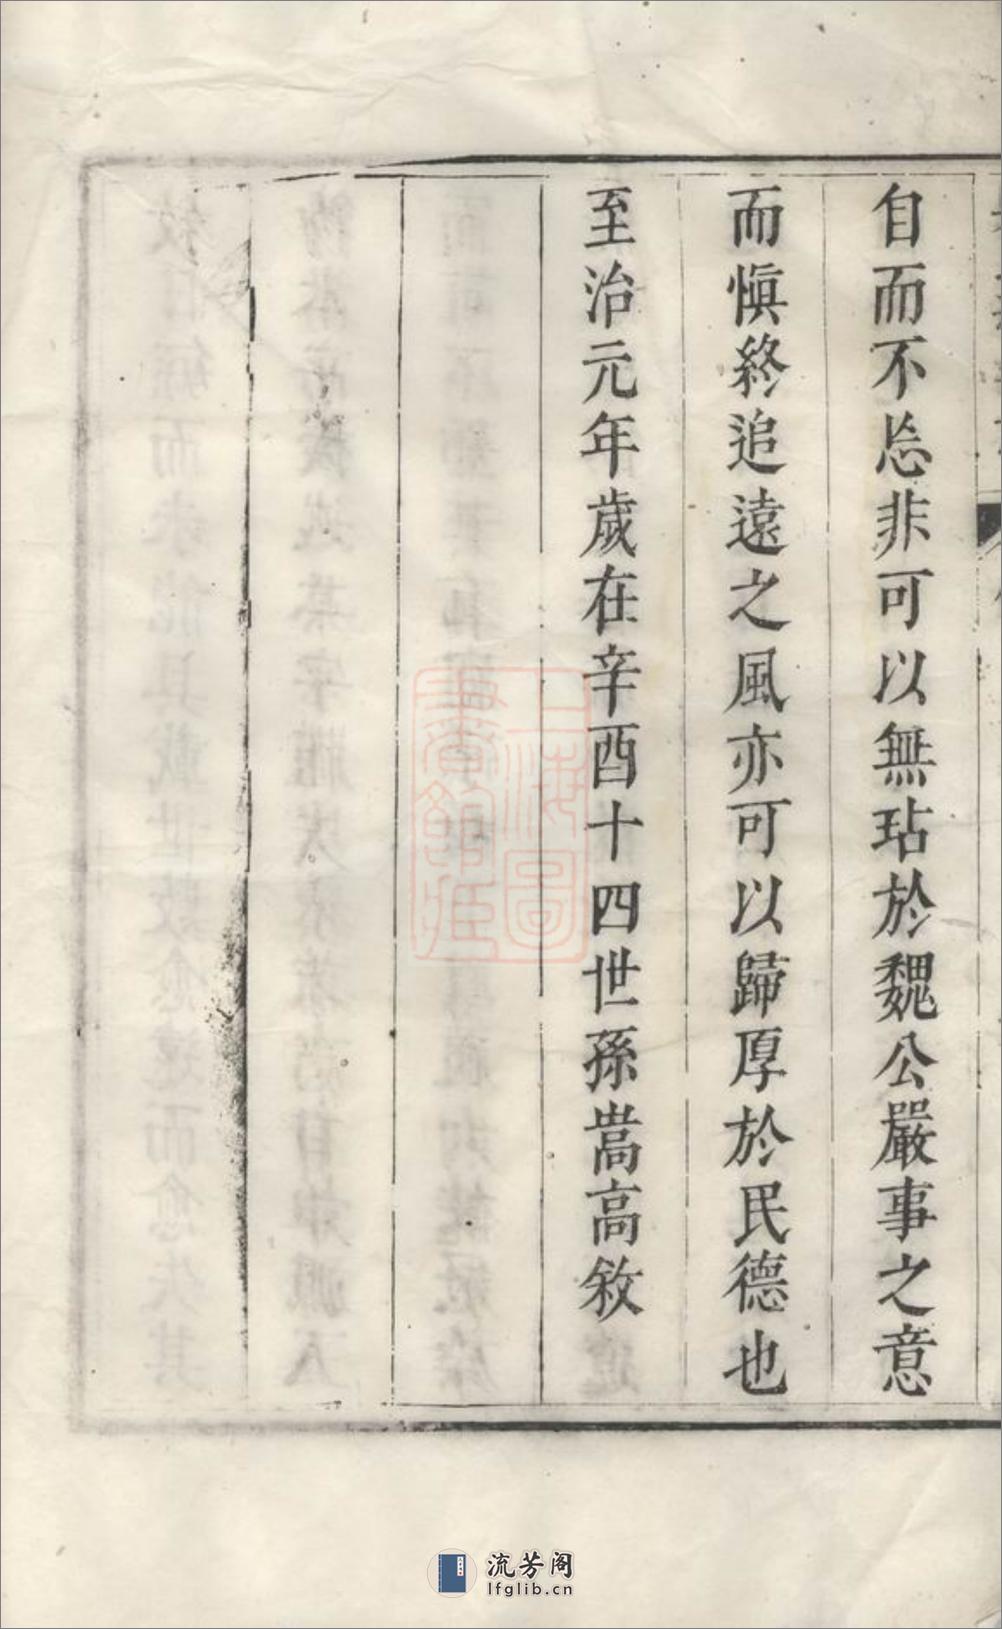 自而不忘非可以無玷於魏公嚴事之意
而慎終追遠之風亦可以歸厚於民德也
至治元年歲在辛酉十四世孫嵩高敘
上海圖
書館藏
流芳阁
lfglib.cn